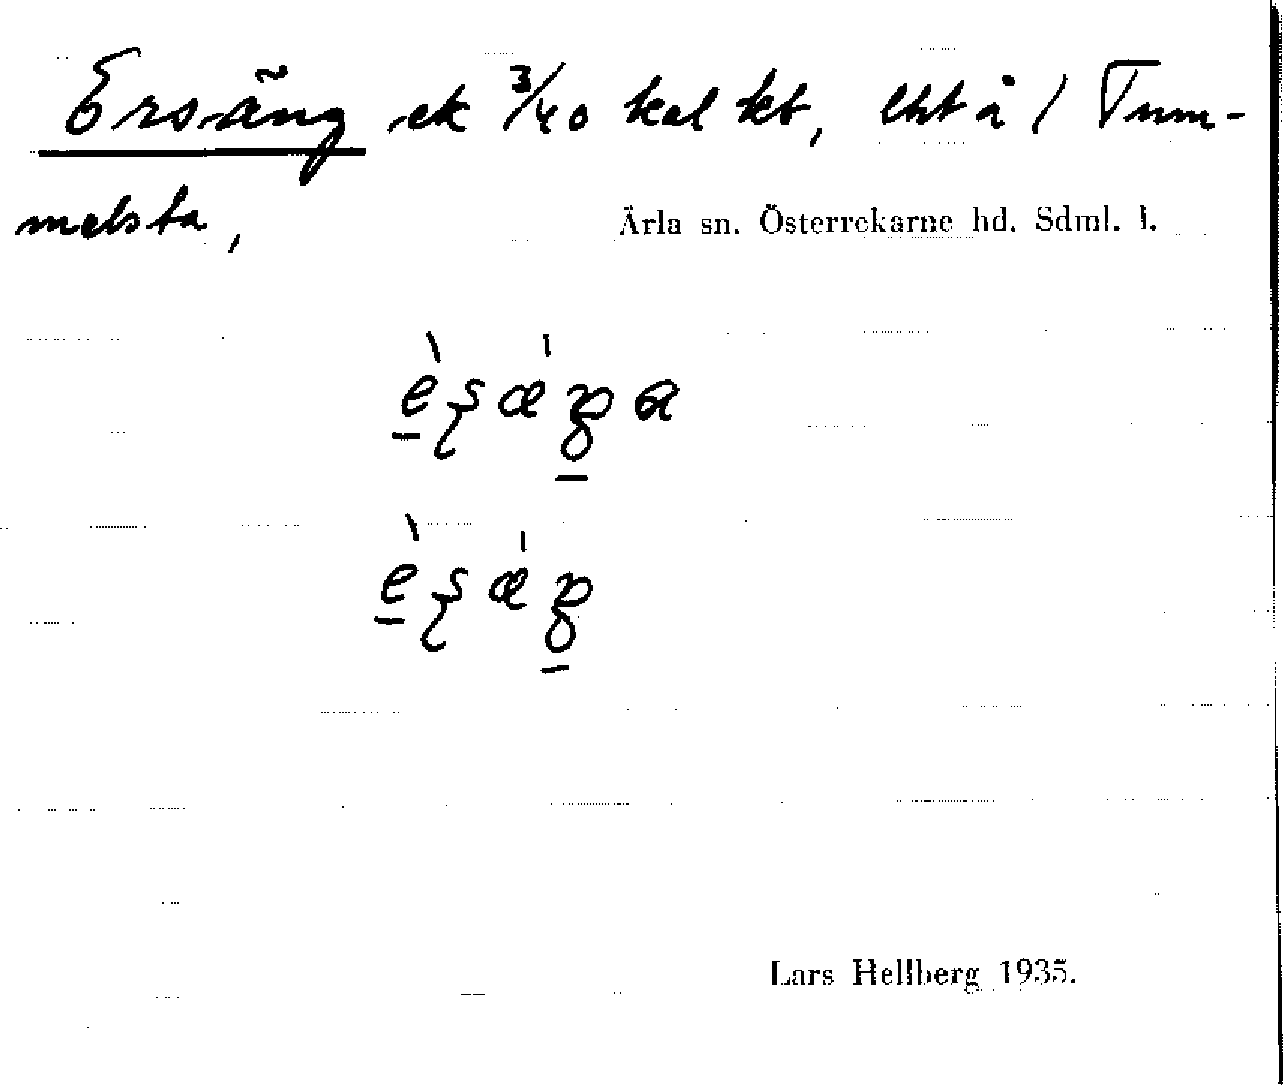 Ersäng ek 3/40 kal kt, lht å / Tum-
melsta,
Ärla sn. Österrekarne hd. Sdml. l.
Lars Hellberg 1935.